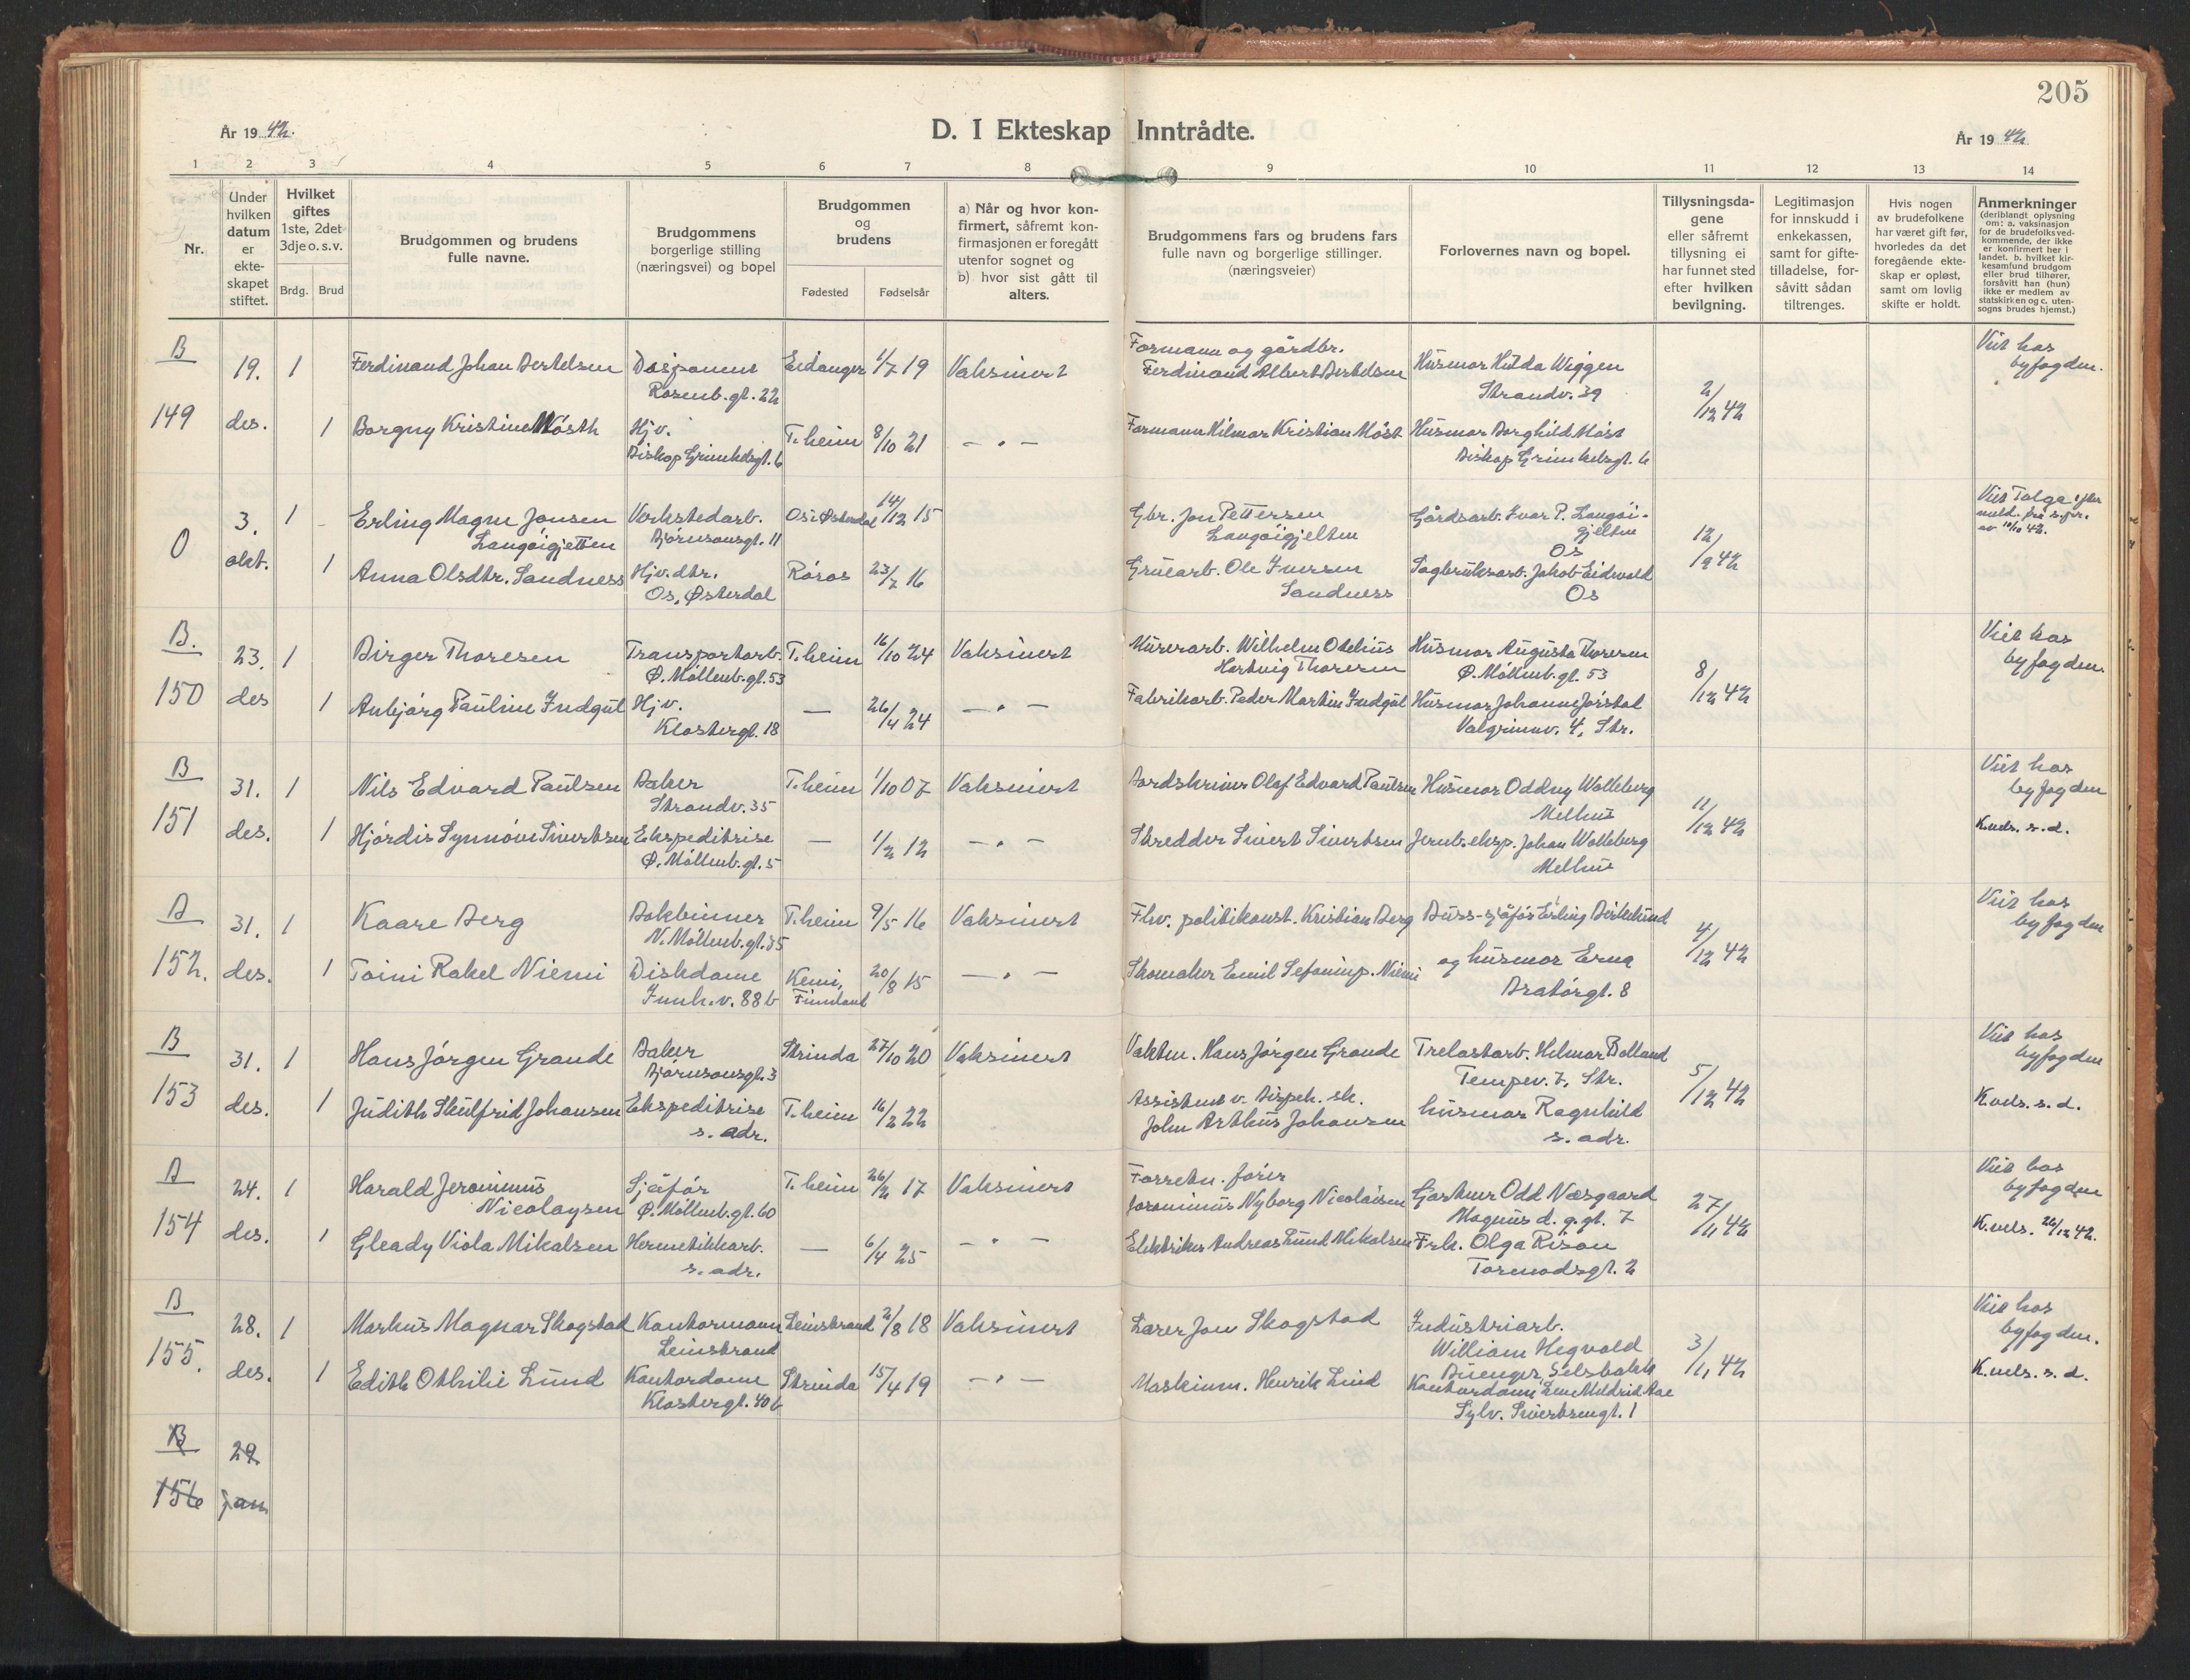 205
År 19 42.
D. I Ekteskap Inntrådte.
År 19 42
1 2 3 4 5 6 7 8 9 10 11 12 13 14
Nr.
Under hvilken datum er ekte-skapet stiftet.
Hvilket giftes 1ste, 2det 3dje o. s. v.
Brdg. Brud
Brudgommen og brudens fulle navne.
Brudgommens borgerlige stilling (næringsvei) og bopel
Brudgommen og brudens
Fødested Fødselsår
a) Når og hvor kon-firmert, såfremt kon-firmasjonen er foregått utenfor sognet og b) hvor sist gått til alters.
Brudgommens fars og brudens fars fulle navn og borgerlige stillinger. (næringsveier)
Forlovernes navn og bopel.
Tillysningsda-gene eller såfremt tillysning ei har funnet sted efter hvilken bevilgning.
Legitimasjon for innskudd i enkekassen, samt for gifte-tilladelse, for-såvitt sådan tiltrenges.
Hvis nogen av brudefolkene har været gift før, hvorledes da det foregående ekte-skap er opløst, samt om lovlig skifte er holdt.
Anmerkninger (deriblandt oplysning om: a. vaksinasjon for de brudefolks ved-kommende, der ikke er konfirmert her i landet. b. hvilket kir-kesamfund brudgom eller brud tilhører, forsåvitt han (hun) ikke er medlem av statskirken og c. uten-sogns brudes hjemst.)
B
149
19. des.
1 Ferdinand Johan Bertelsen
Rosenb.gt. 22
Eidanger 1/7 19 Vaksinert
Formann og gårdbr.
Ferdinand Albert Bertelsen
Husmor Hilda Wiggen
Strandv. 39
2/12 42
Viet hos byfogden.
1 Borgny Kristine Møsth
Hjv.
Biskop Grimkelsgt. 6
T.heim 8/10 21 — " —
Formann Hilmar Kristian Møst
Husmor Borghild Møst
Biskop Grimkelsgt. 6
0
3. okt.
1 Erling Magne Jonsen
Langøigjelten
Verkstedarb.
Bjørnsonsgt. 11
Os i Østerdal 14/12 15
Gbr. Jon Pettersen
Langøigjelten
Gårdsarb. Ivar P. Langøi-
gjelten
Os
12/9 42
Viet Tolga efter
meld. fra s.pr.
av 10/10 42.
1 Anna Olsdtr. Sandness
Hjv. dtr.
Os, Østerdal
Røros 23/7 16
Gruearb. Ole Iversen
Sandness
Sagbruksarb. Jakob Eidsvold
Os
B.
150
23. des
1 Birger Thoresen
Transportarb.
Ø. Møllenb.gt. 53
T.heim 16/10 24 Vaksinert
Murerarb. Wilhelm Otelius
Hartvig Thoresen
Husmor Augusta Thoresen
Ø. Møllenb.gt. 53
8/12 42
Viet hos
byfogden
1 Anbjørg Pauline Indgul
Hjv.
Klostergt. 18
— 26/4 24 — " —
Fabrikarb. Peder Martin Indgul
Husmor Johanne Jørstad
Valgrinnv. 4, Str.
B
151
31. des.
1 Nils Edvard Paulsen
Baker
Strandv. 35
T.heim 1/10 07 Vaksinert
Bordskriver Olaf Edvard Paulsen
Husmor Oddny Wolleberg
Melhus
11/12 42
Viet hos
byfogden
K.vels. s.d.
1 Hjørdis Synnøve Sivertsen
Ekspeditrise
Ø. Møllenb.gt. 5
— 1/2 12 — " —
Skredder Sivert Sivertsen
Jernb.eksp. Johan Wolleberg
Melhus
A
152.
31. des.
1 Kaare Berg
Bokbinner
N. Møllenb.gt. 35
T.heim 9/5 16 Vaksinert
Fhv. politikonst. Kristian Berg
Buss-sjåfør Erling Birkelund
og husmor Erna
Bratørgt. 8
4/12 42
Viet hos
byfogden
1 Toini Rakel Niemi
Diskdame
Innh.v. 88b
Kemi,
Finnland
20/8 15 — " —
Skomaker Emil Niemi
B
153
31. des.
1 Hans Jørgen Grande
Baker
Bjørnsonsgt. 3
Strinda 27/10 20 Vaksinert
Vaktm. Hans Jørgen Grande
Trelastarb. Helmar Bolland
Tempev. 7, Str.
5/12 42
Viet hos
byfogden
K.vels. s. d.
1 Judith Skulfrid Johansen
Ekspeditrise
s. adr.
T.heim 16/2 22
Assistent v. Bispeh. sk.
John Arthur Johansen
husmor Ragnhild
s. adr.
A
154
24. des.
1 Harald Jeronimus
Nicolaysen
Sjåfør
Ø. Møllenb.gt. 60
T.heim 26/2 17 Vaksinert
Forretn.fører
Jeronimus Nyborg Nicolaisen
Gartner Odd Næsgaard
Magnus d. g. gt. 7
27/11 42
Viet hos
byfogden
K.vels. 26/12 42.
1 Gleady Viola Mikalsen
Hermetikkarb.
s. adr.
— 6/4 25 — " —
Elektriker Andreas Lund Mikalsen
Frk. Olga Risan
Tormodsgt. 2
B
155.
28. des.
1 Markus Magnar Skogstad
Kontormann
Leinstrand
Leinstrand 2/8 18 Vaksinert
Lærer Jon Skogstad
Industriarb.
William Hegvold
Buenget, Selsbakk
3/11 42
Viet hos
byfogden.
K.vels. s. d.
1 Edith Othilie Lund
Kontordame
Klostergt. 40b
Strinda 15/4 19 — " —
Maskinm. Henrik Lund
Kontordame Lene Meldrid Aae
Sylv. Sivertsengt. 1
B
156
29
jan